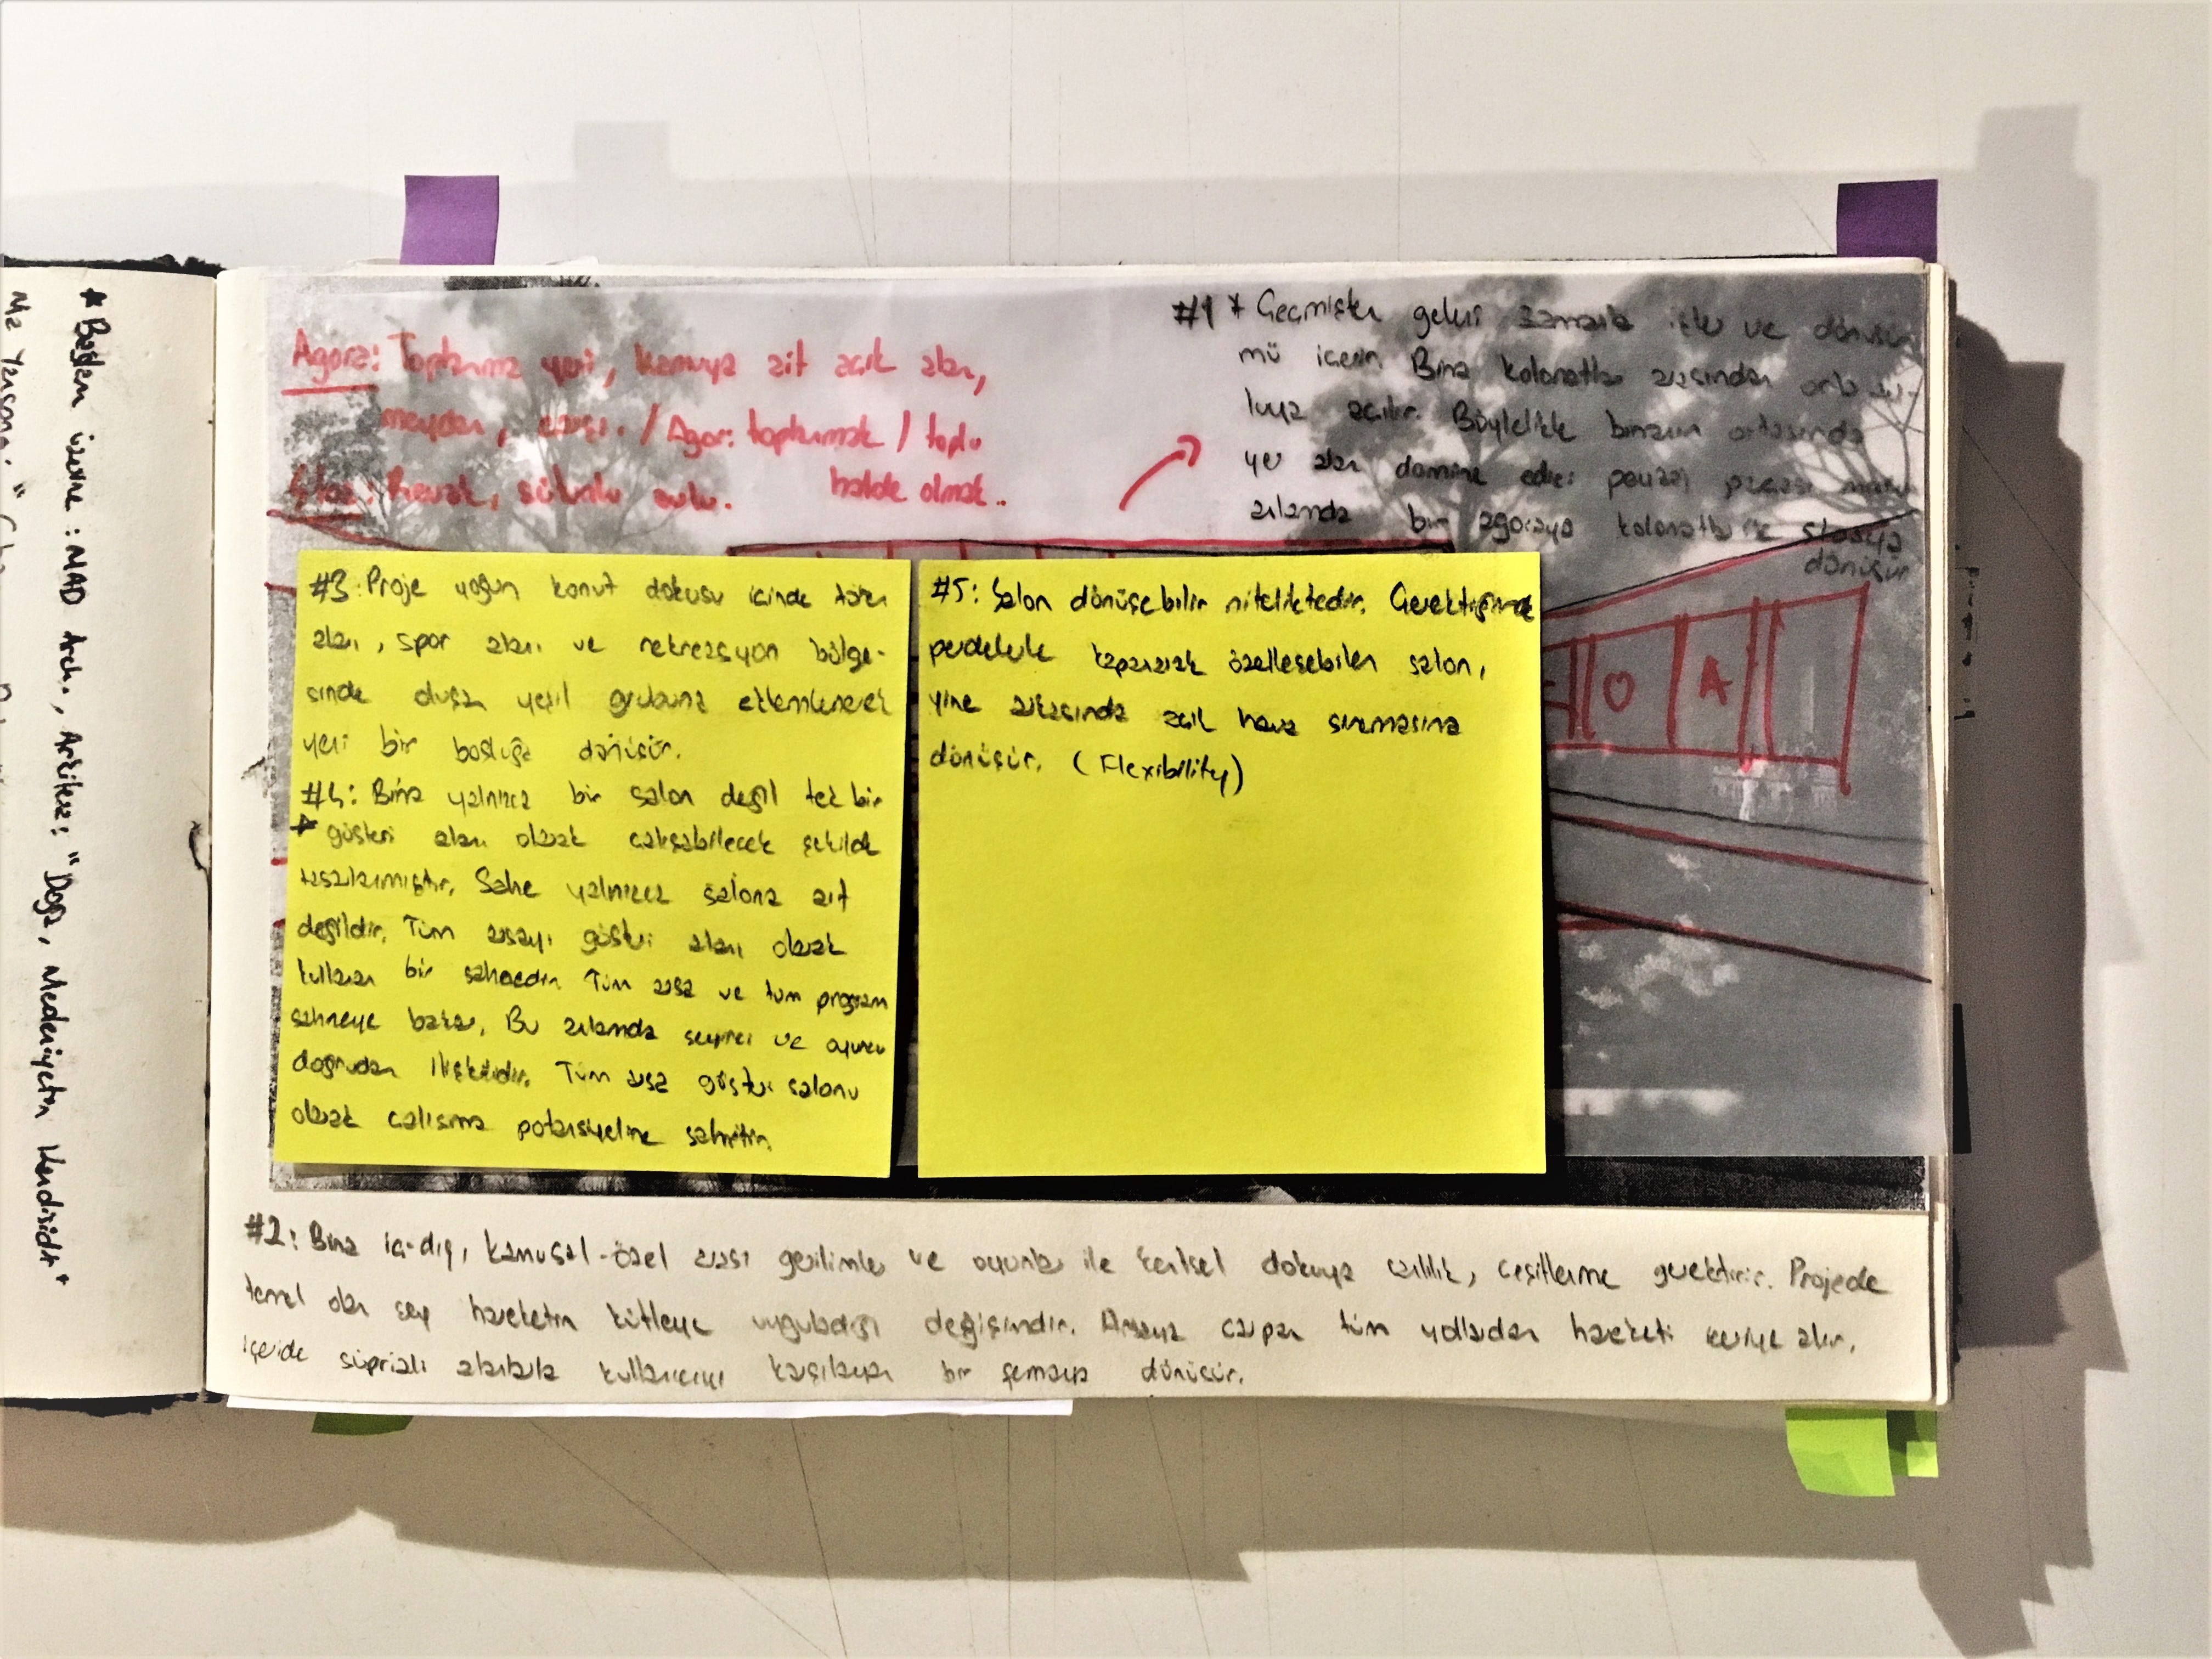 ★ Bağlam üzerine : MAD Arch., Arzitekst: "Doğa, Medeniyetin Kendisidir"
Agora: Toplanma yeri, kamuya ait açık alan,
meydan, çarşı. / Agor: toplanmak / toplu
halde olmak..
Stoa: Revak, sütunlu avlu.
#1 * Geçmişten gelen ve dönüşü-
mü içeren Bina kolonatlar arasından orta av-
luya açılır. Böylelikle binanın ortasında
yer alan domine edici parçası
anlamda bir agoraya kolonatlar ise stoaya
dönüşür
O A
#3: Proje yoğun konut dokusu içinde tarım
alanı, spor alanı ve rekreasyon bölge-
sinde oluşan yeşil grubuna eklemlenerek
yeni bir boşluğa dönüşür.
#4: Bina yalnızca bir salon değil tek bir
★ gösteri alanı olarak çalışabilecek şekilde
tasarlanmıştır. Sahne yalnızca salona ait
değildir. Tüm arsayı gösteri alanı olarak
kullanan bir sahnedir. Tüm arsa ve tüm program
sahneye bakar. Bu anlamda seyirci ve oyuncu
doğrudan ilişkilidir. Tüm arsa gösteri salonu
olarak çalışma potansiyeline sahiptir.
#5: Salon dönüşebilir niteliktedir. Gerektiğinde
perdelerle kapanarak özelleşebilen salon,
yine arkasında açık hava sinemasına
dönüşür. (Flexibility)
#2: Bina iç-dış, kamusal-özel arası gerilimler ve oyunlar ile kentsel dokuya çeşitlenme gerektirir. Projede
temel olan şey hareketin kütleye uyguladığı değişimdir. Arsaya çarpan tüm yollardan hareketi içeriye alır.
içeride süprizli alanlarla kullanıcıyı karşılayan bir şemaya dönüşür.